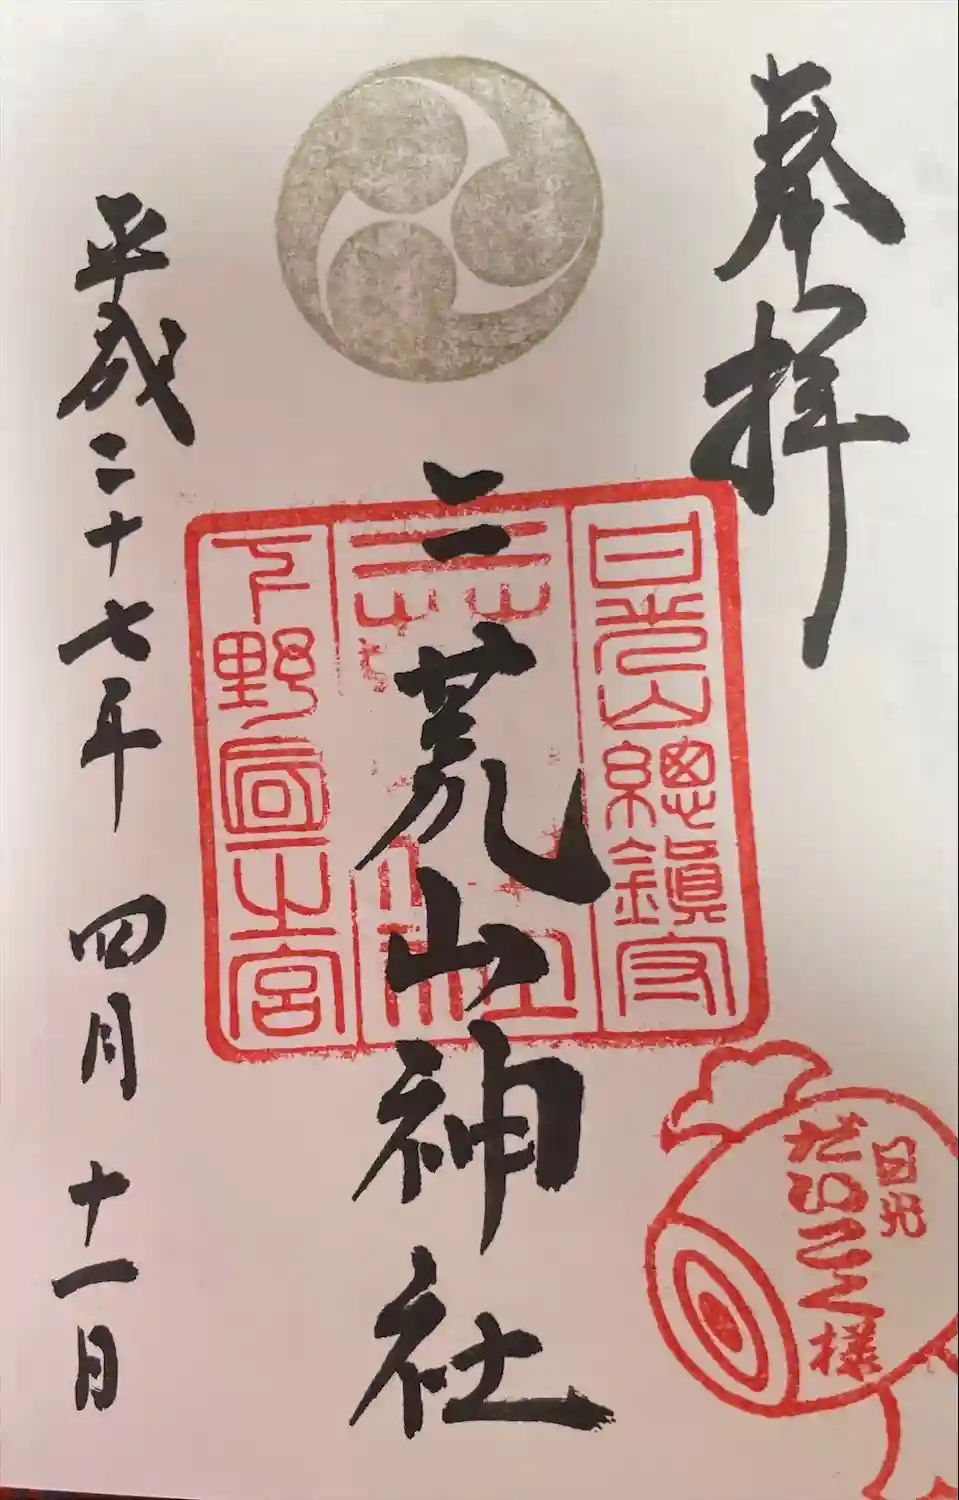 奉拝
日光山總鎮守
二荒山神社
下野國一之宮
日光
だいこく様
平成二十七年 四月 十一日